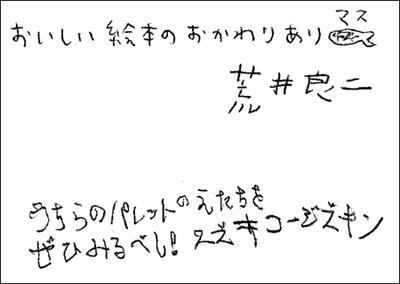 おいしい絵本のおかわりあり マス
荒井良二
うちらのパレットのえたちを
ぜひみるべし! スズキコージズキン